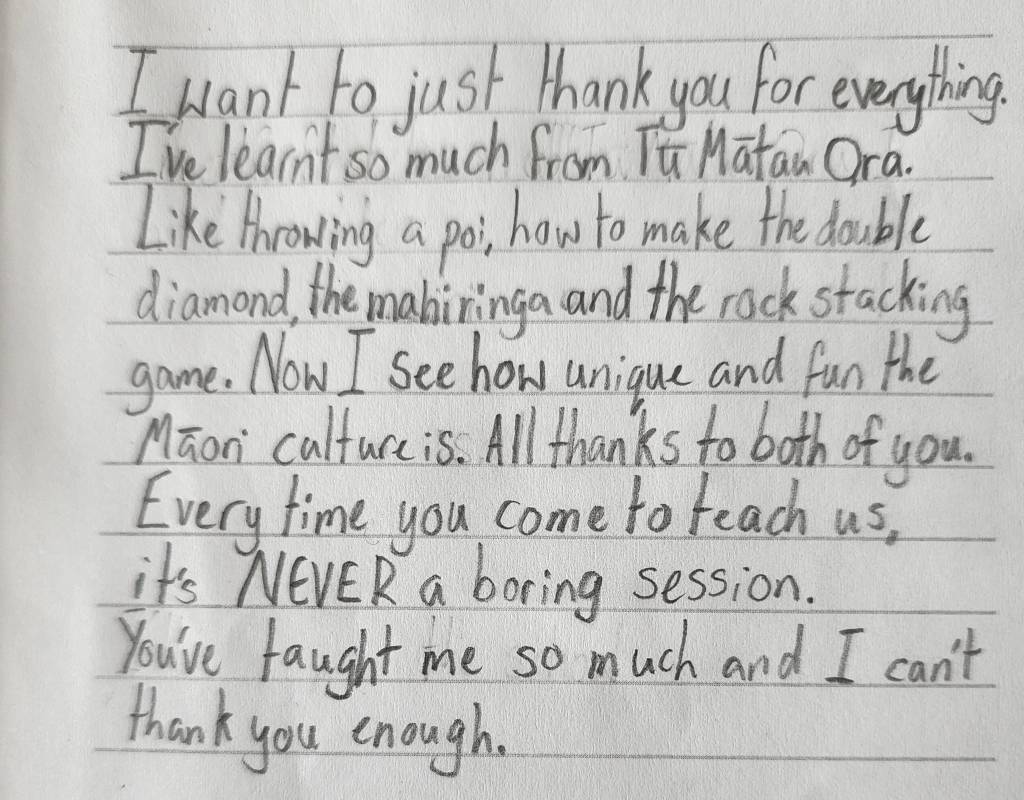 I want to just thank you for everything.
I've learnt so much from Tū Mātau Ora.
Like throwing a poi, how to make the double
diamond, the mahi ringa and the rock stacking
game. Now I see how unique and fun the
Māori culture is. All thanks to both of you.
Every time you come to teach us,
it's NEVER a boring session.
You've taught me so much and I can't
thank you enough.